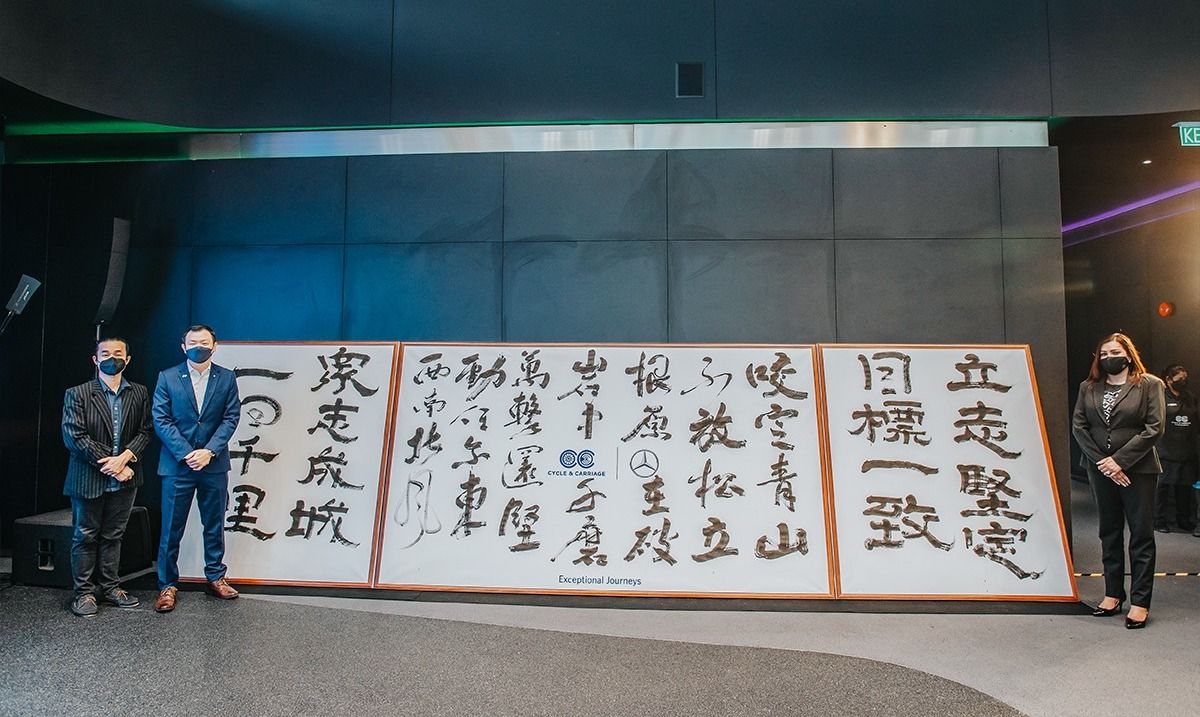 立志堅定
目標一致
咬定青山
不放松立
根原在破
岩中千磨
萬擊還堅
勁任尔東
西南北风
眾志成城
一日千里
CYCLE & CARRIAGE
Exceptional Journeys
KE